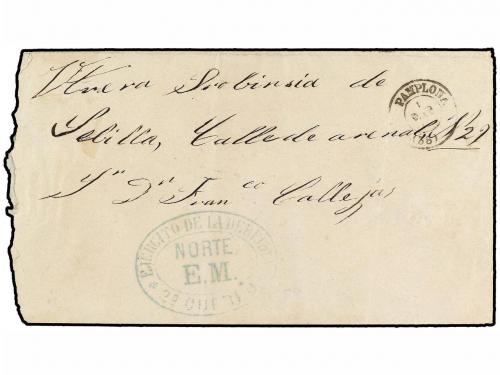 Utrera Probinsia de
Sebilla, Calle de arenal Nº 29
Sr Dn Franco Callejas
PAMPLONA
1
(86)
EJÉRCITO DE LA DERECHA
NORTE
E.M.
2º